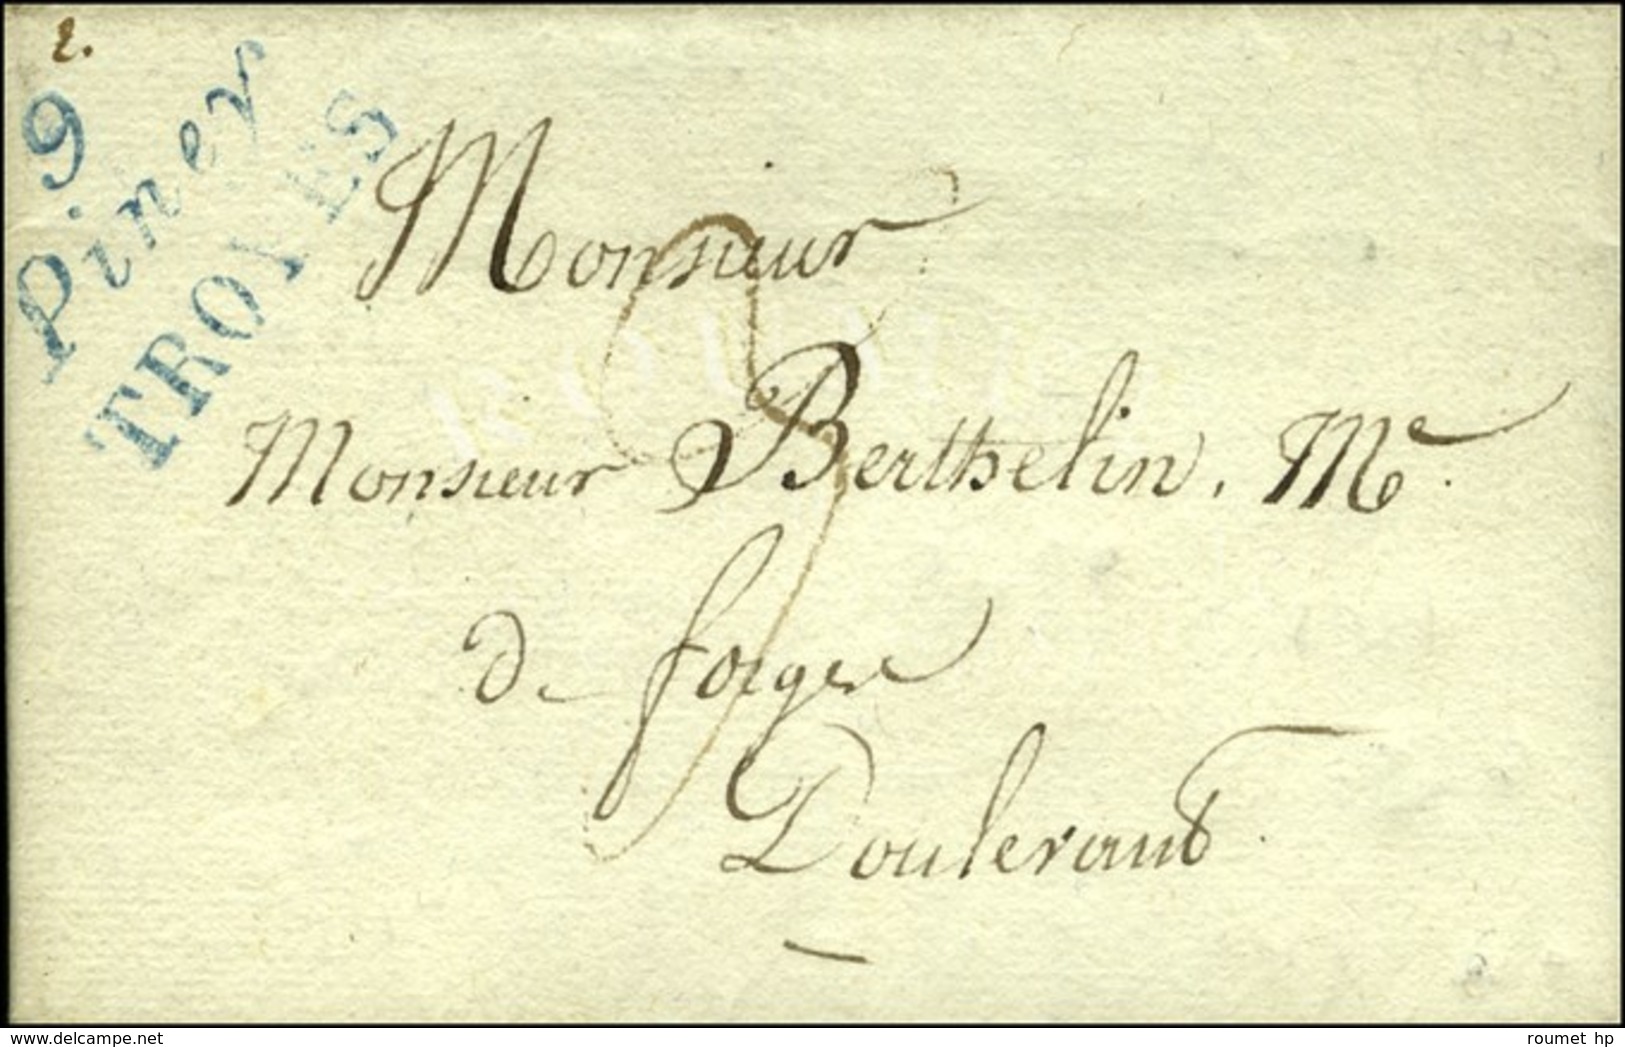 2.
9
Piney
TROYES
Monsieur
Monsieur Berthelin, Me.
De forge
Doulevant
roumet hp